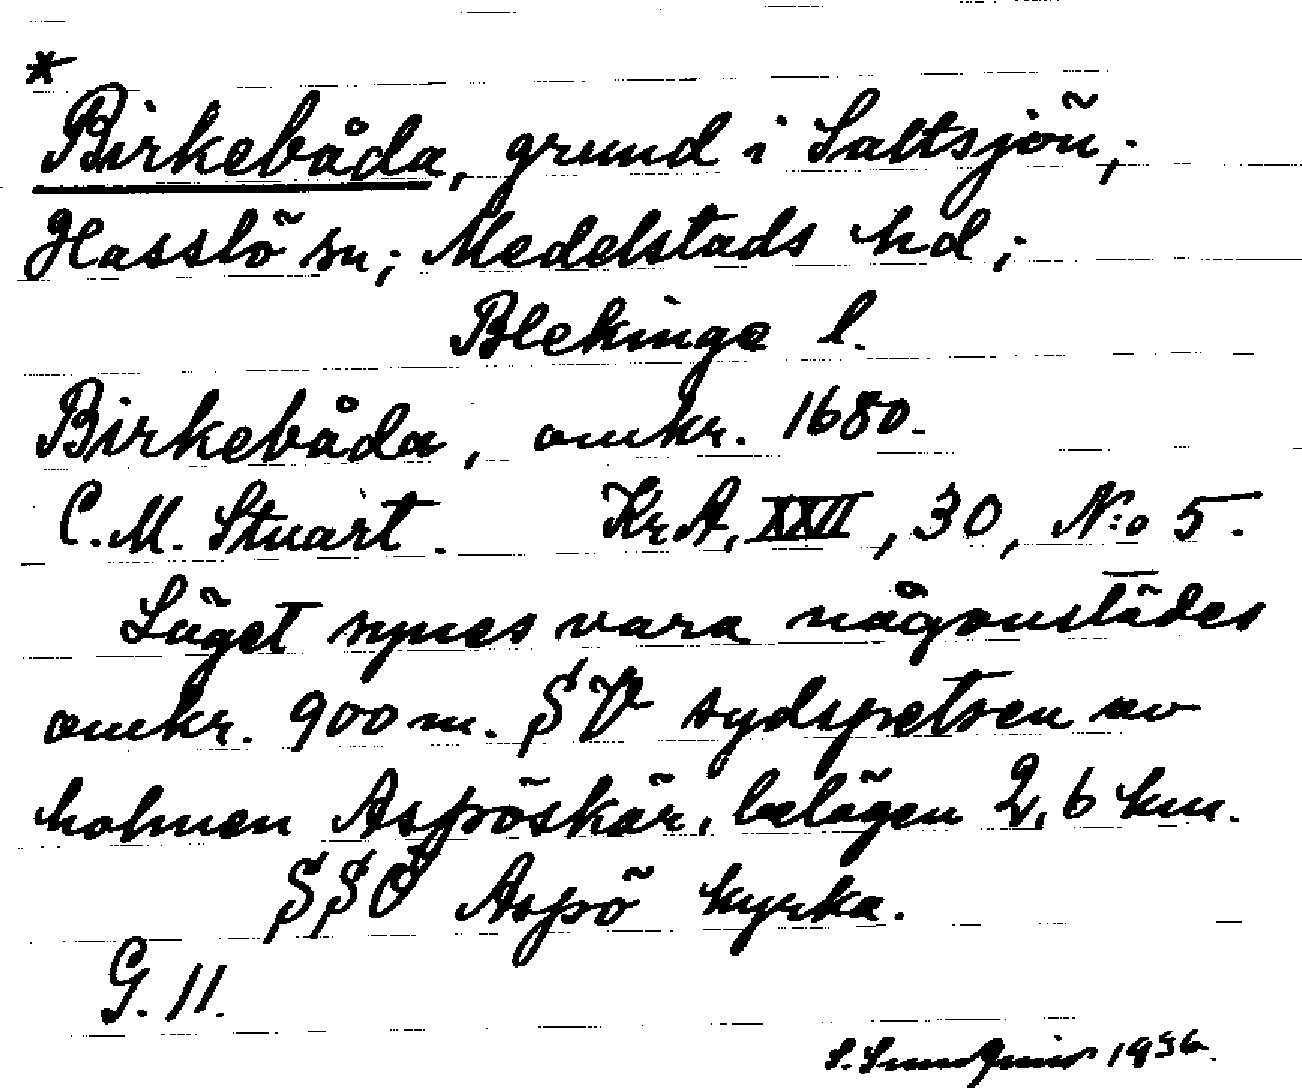 *
Birkebåda, grund i Saltsjön;
Hasslö sn; Medelstads hd;
Blekinge l.
Birkebåda, omkr. 1680.
C.M. Stuart. Kr.A. XXII, 30, N:o 5.
Läget synes vara någonstädes
omkr. 900 m. SV sydspetsen av
holmen Aspöskär, belägen 2,6 km.
SSO Aspö kyrka.
G. 11.
S. 1936.